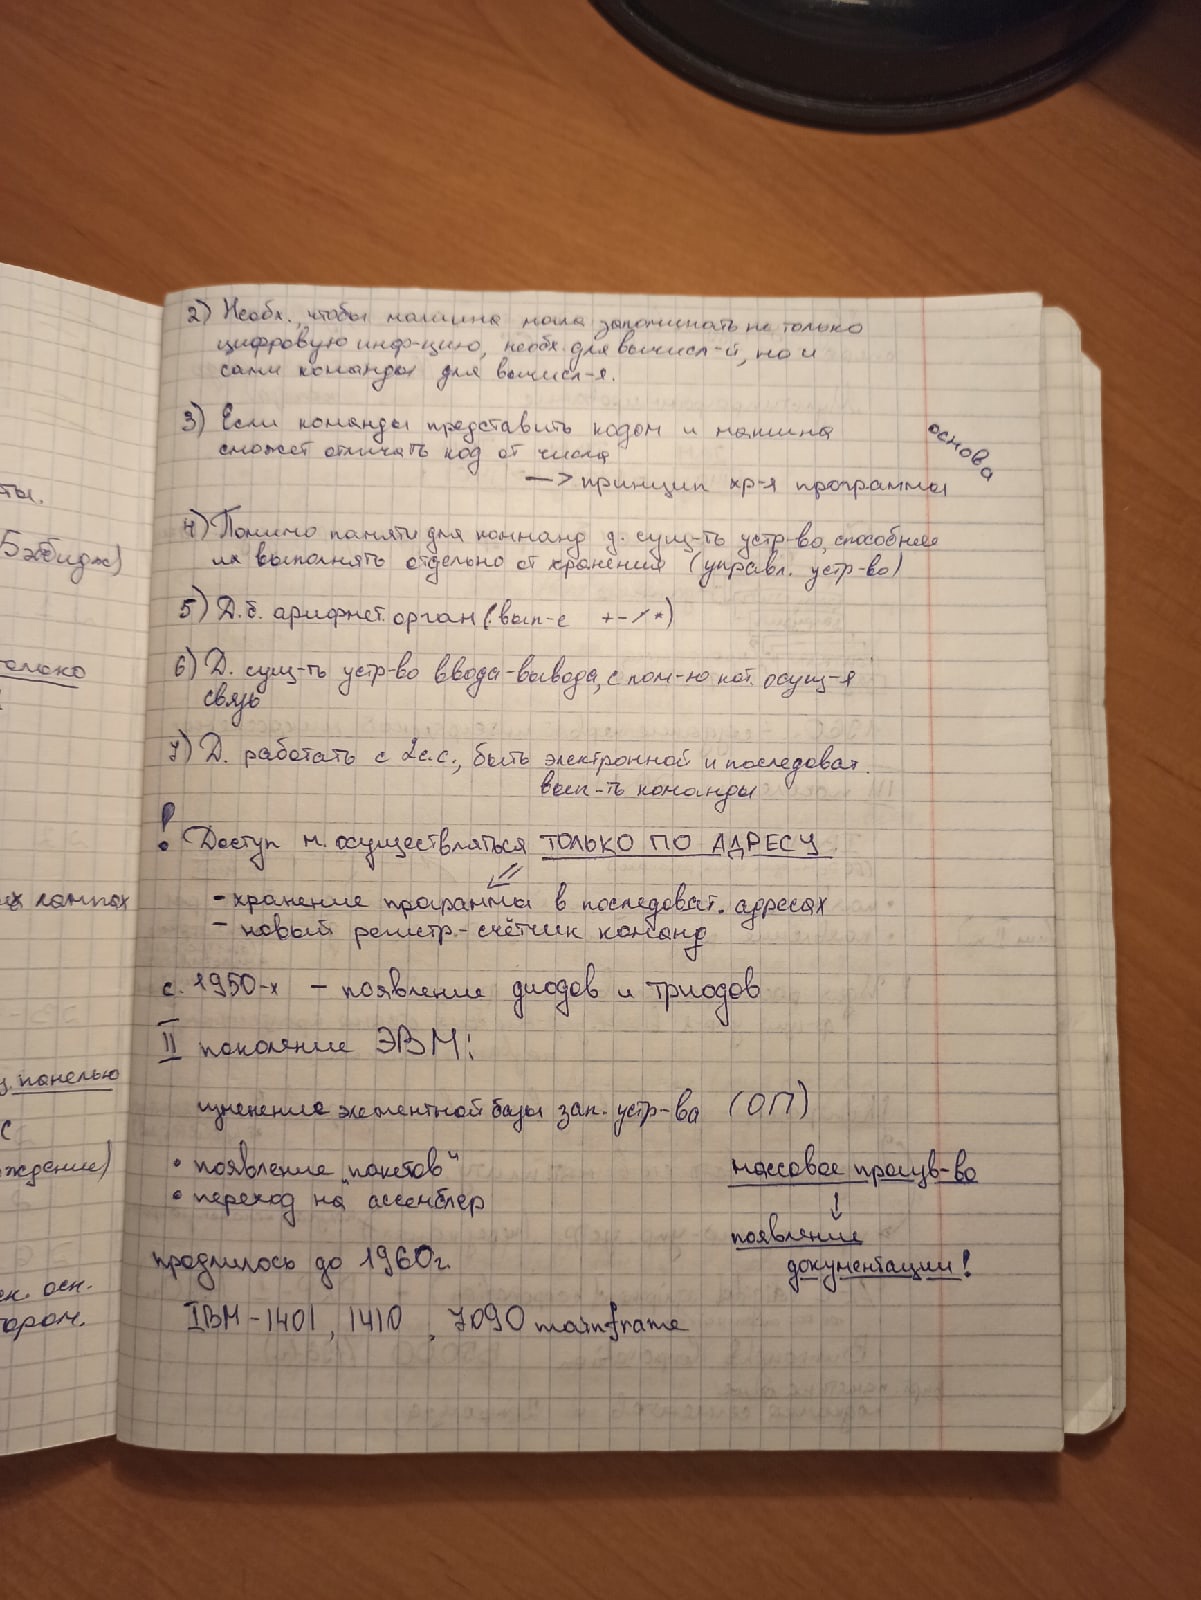 2) Необх., чтобы машина могла запоминать не только
цифровую инф-цию, необх. для вычисл-й, но и
сами команды для вычисл-я.
3) Если команды представить кодом и машина
сможет отличать код от числа
основа
—> принцип хр-я программы
4) Помимо памяти для комманд д. сущ-ть устр-во, способное
их выполнять отдельно от хранения (управл. устр-во)
5) Д.б. арифмет. орган (вып-е + - / *)
6) Д. сущ-ть устр-во ввода-вывода, с пом-ю кот. осущ-я
связь
7) Д. работать с 2с.с., быть электронной и последоват.
вып-ть команды
! Доступ м. осуществляться ТОЛЬКО ПО АДРЕСУ
- хранение программы в последоват. адресах
- новый регистр-счётчик команд
с. 1950-х – появление диодов и триодов
II поколение ЭВМ:
изменение элементной базы зап. устр-ва (ОП)
• появление „пакетов“
массовое произв-во
• переход на ассемблер
появление
документации!
продлилось до 1960г.
IBM-1401, 1410, 7090 mainframe
ты.
Бэббидж)
олько
их лампах
панелью
с
ждение)
осн.